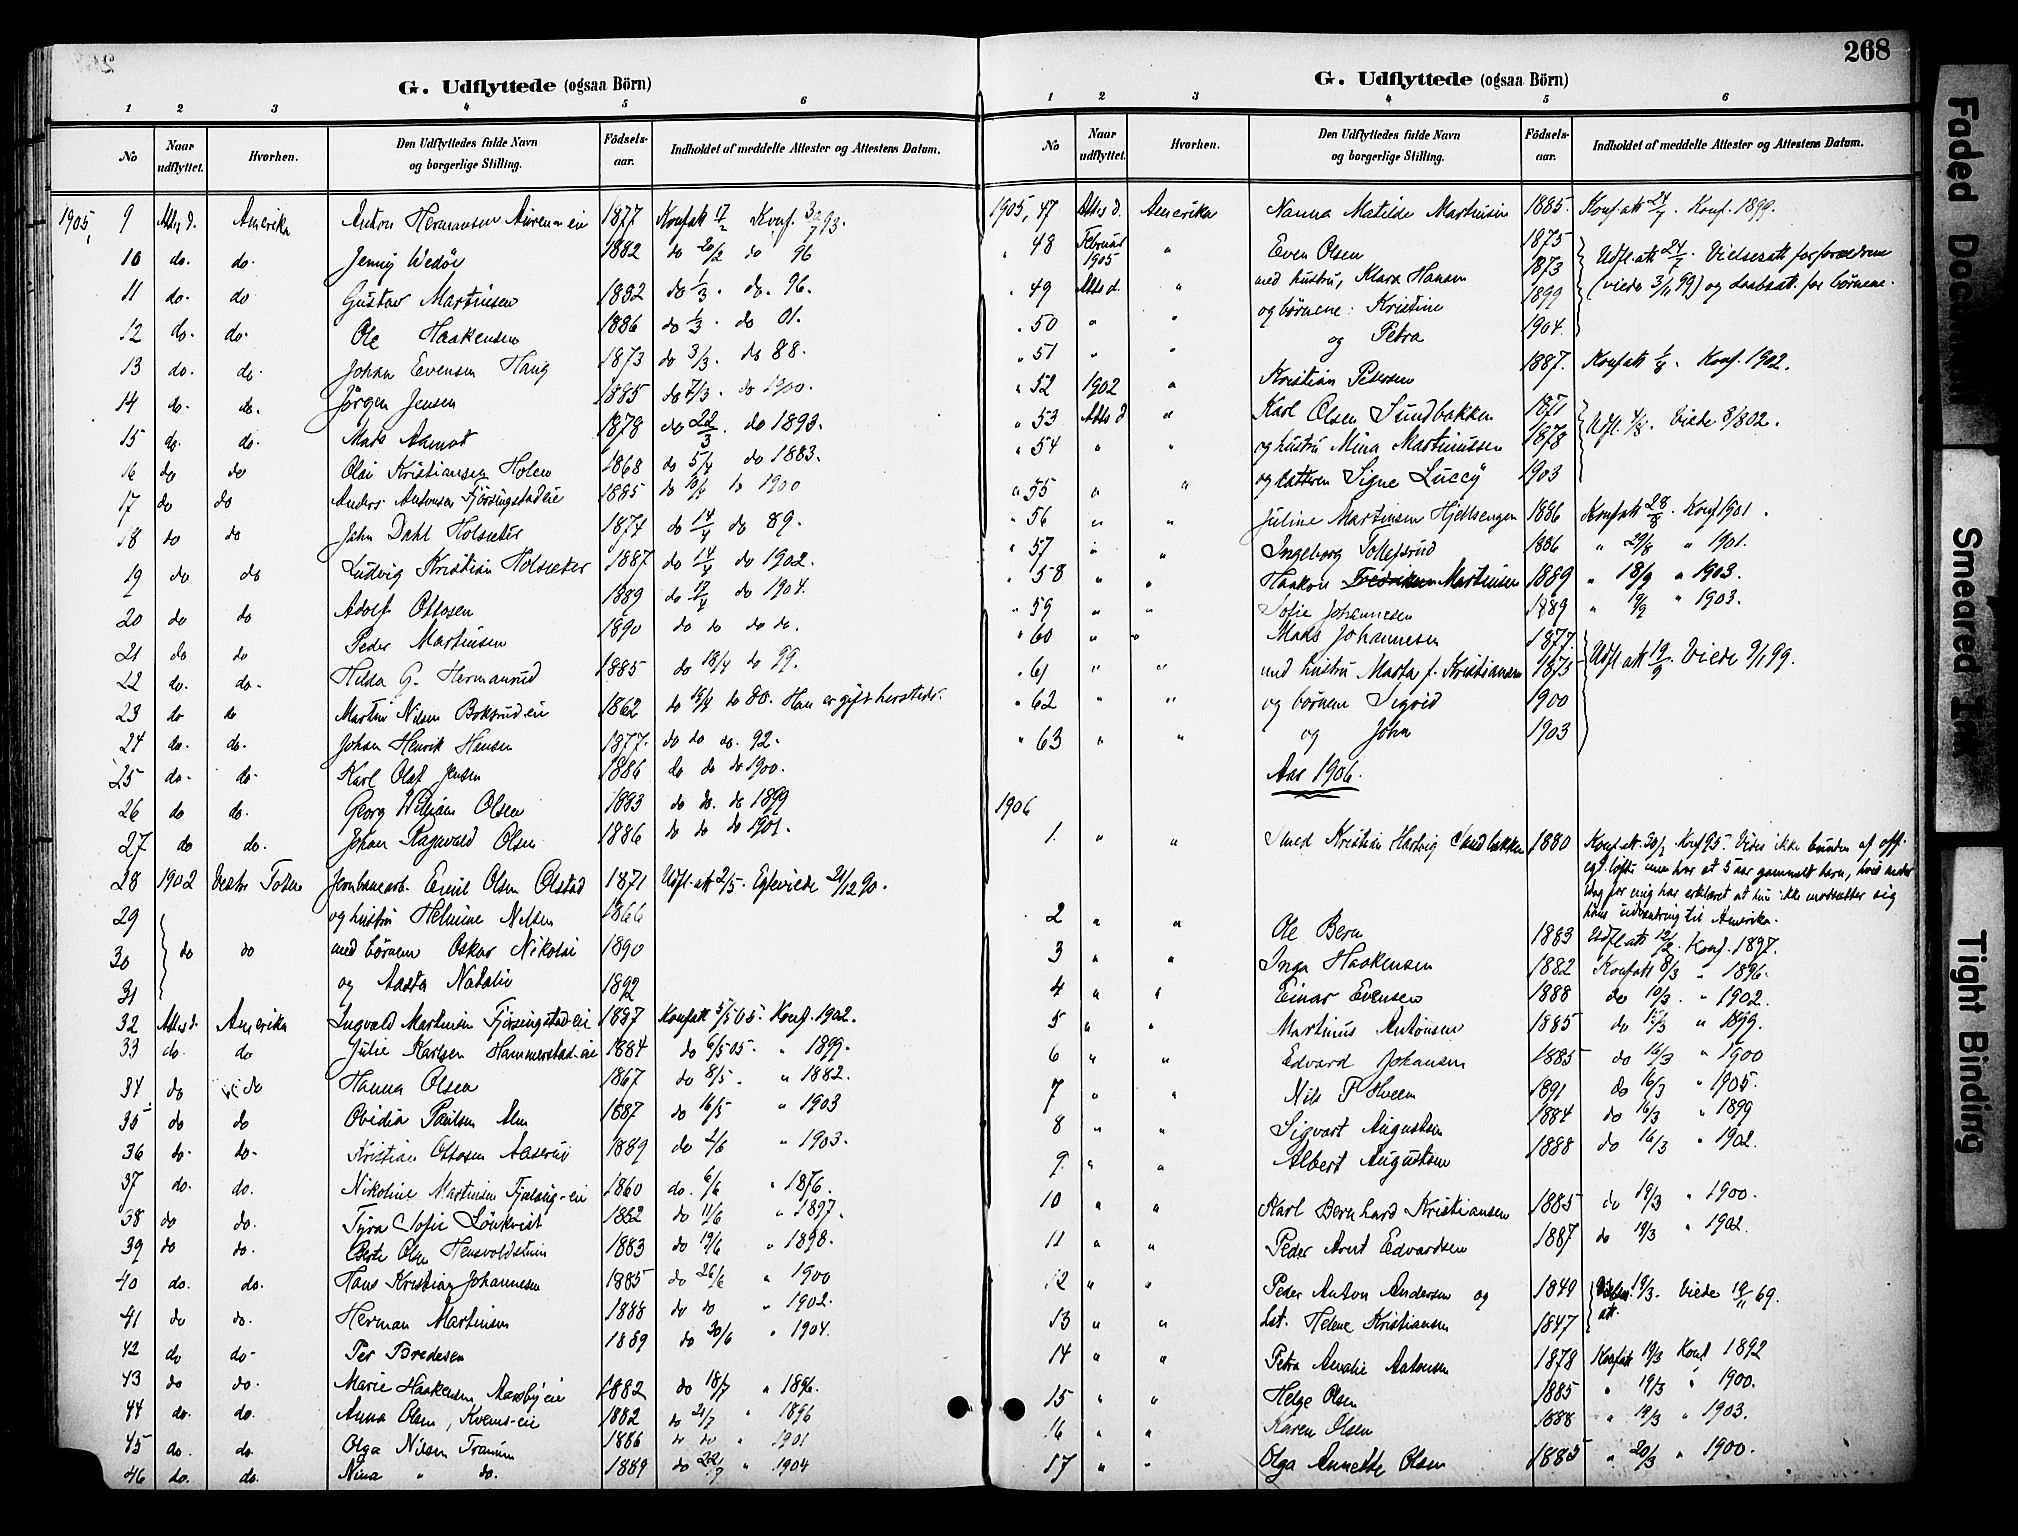 268
G. Udflyttede (ogsaa Börn)
1 2 3 4 5 6
No Naar udflyttet. Hvorhen. Den Udflyttedes fulde Navn og borgerlige Stilling. Födsels-aar. Indholdet af meddelte Attester og Attestens Datum.
1905, 9 Attes d. Amerika Anton Hermansen 1877 Konfatt 17/2 Konf. 30/7 93.
10 do. do. Jenny Wedöe 1882 do 20/2 do 96
11 do. do Gustav Martinsen 1882 do 1/3 . do. 96.
12 do. do. Ole Haakensen 1886 do 1/3 . do 01.
13 do. do. Johan Evensen Haug 1873 do 3/3. do 88.
14 do. do. Jörgen Jensen 1885 do 7/3. do 1900.
15 do. do. Mats Aamot 1878 do 22/3. do 1893.
16 do do Olai Kristiansen Holen 1868 do 5/4 do 1883.
17 do do Anders Antonsen Fjörsingstadeie 1885 do 10/4 do 1900
18 do do John Dahl Holsæter 1874 do 14/4 do 89.
19 do do Ludvig Kristian Holsæter 1887 do 14/4 do 1902.
20 do do Adolf Ottosen 1889 do 17/4 do 1904.
21 do do Peder Martinsen 1890 do do do do.
22 do. do. Hilda G. Hermanrud 1885 do 18/4 do 99.
23 do do Martin Nilsen Boksrudeie 1862 do 18/4 do 80. Han er gift hersteds.
24 do. do. Johan Henrik Hansen 1877. do do do. 92.
25 do. do. Karl Olaf Jensen 1886 do do do 1900.
26 do do. Georg William Olsen 1883 do do. do 1899
27 do do. Johan Ragnvald Olsen 1886 do do do 1901.
28 1902 Vestre Toten Jernbanearb. Emil Olsen Olstad 1871 Udfl. att 2/5. Egteviede 21/12 90.
29 og hustru Helmine Nilsen 1866
30 do do med börnene Oskar Nikolai 1890
31 og Aasta Natalie 1892
32 Attes d. Amerika Ingvald Martinsen Fjörsingstad-eie 1887 Konfatt 5/5 05. Konf. 1902.
33 do. do Julie Karlsen Hammerstad-eie 1884 do 6/5 05. " 1899.
34 do do Hanna Olsen 1867 do 8/5. " 1882.
35 do do Ovidia Paulsen Alm 1887 do 16/5 " 1903
36 do. do. Kristian Ottosen Aaserud 1889 do 2/6 " 1903.
37 do. do. Nikoline Martinsen 1860 do. 6/6 " 1876.
38 do do. Tyra Sofie Lönkvist 1882 do 11/6 " 1897.
39 do do. Olsen 1883 do 19/6 " 1898.
40 do. do. Hans Kristian Johannesen 1885 do 26/6 " 1900
41 do do. Herman Martinsen 1888 do do " 1902.
42 do do. Per Bredesen 1889 do 30/6 " 1904.
43 do do. Marie Haakensen Aasbyeie 1882 do 18/7 " 1896.
44 do. do. Anna Olsen, Kvems-eie 1882 do 21/7 " 1896
45 do. do. Olga Nilsen Tranum 1886 do do " 1901
46 do. do. Nina " do. 1889 do 22/7 " 1904
G. Udflyttede (ogsaa Börn)
1 2 3 4 5 6
No Naar udflyttet. Hvorhen. Den Udflyttedes fulde Navn og borgerlige Stilling. Födsels-aar. Indholdet af meddelte Attester og Attestens Datum.
1905, 47 Attes d. Amerika Nanna Matilde Martinsen 1885. Konf. att 24/7. Konf. 1899.
" 48 Februar 1905 " Even Olsen 1875 Udfl. att 24/7. Vielsesatt for forældrene
" 49 Attes d. " med hustru, Klara Hansen 1873 (viede 3/11 99) og daabsatt. for börnene.
" 50 " " og börnene: Kristine 1899
" 51 " " og Petra 1904.
" 52 1902 " Kristian Petersen 1887. Konfatt 1/8. Konf. 1902.
" 53 Attes d " Karl Olsen Sundbakken 1871 Udfl. 4/8. Viede 8/8 02.
" 54 " " og hustru Mina Martinussen 1878
" 55 " " og datteren Signe Luccy 1903
" 56 " " Juline Martinsen Hjellsengen 1886 Konfatt 28/8. Konf 1901.
" 57 " " Ingeborg Tollefsrud 1886 " 29/8 " 1901.
" 58 " " Haakon Fredriksen Martinsen 1889 " 18/9 " 1903.
" 59 " " Sofie Johannesen 1889 " 19/9 " 1903.
" 60 " " Mads Johannesen 1877. Udfl. att 19/9. Viede 9/1 99.
" 61 " " med hustru Marta, f. Kristiansen 1875
" 62 " " og börnene Sigrid 1900
" 63 " " og John 1903
Aar 1906.
1906
1. " " Smed Kristian Hartvig Sundbakken 1880 Konf. att. 30/1 Konf 95. Vides ikke bunden af off.
egt. löfter men har et 5 aar gammelt barn, hvis moder
idag for mig har erklæret at hun ikke modsætter sig
hans udvandring til Amerika.
2 " " Ole Bern 1883 Udfl. att 12/2. Konf. 1897.
3 " " Inga Haakensen 1882 Konfatt 8/3 " 1896.
4 " " Einar Evensen 1888 do 10/3. " 1902.
5 " " Martinus Antonsen 1885 do 15/3 " 1899.
6 " " Edvard Johansen 1885 do 16/3 " 1900
7 " " Nils P Hveem 1891 do 16/3 " 1905.
8 " " Sigvart Augustsen 1884 do 16/3 " 1899
9. " " Albert Augustsen 1888 do 16/3 " 1902.
10 " " Karl Bernhard Kristiansen 1885 do 19/3 " 1900.
11 " " Peder Arnt Edvardsen 1887 do 19/3 " 1902.
12 " " Peder Anton Andersen og 1849 19/3. Viede 19/11 69.
13 " " hst. Helene Kristiansen 1847 att.
14 " " Petra Amalie Antonsen 1878 Konfatt 19/3 Konf 1892
15 " " Helge Olsen 1885 " 19/3 " 1900.
16 " " Karen Olsen 1888 " 19/3 " 1903.
17 " " Olga Annette Olsen 1885 " 20/3 " 1900.
Faded Document
Smeared Ink
Tight Binding